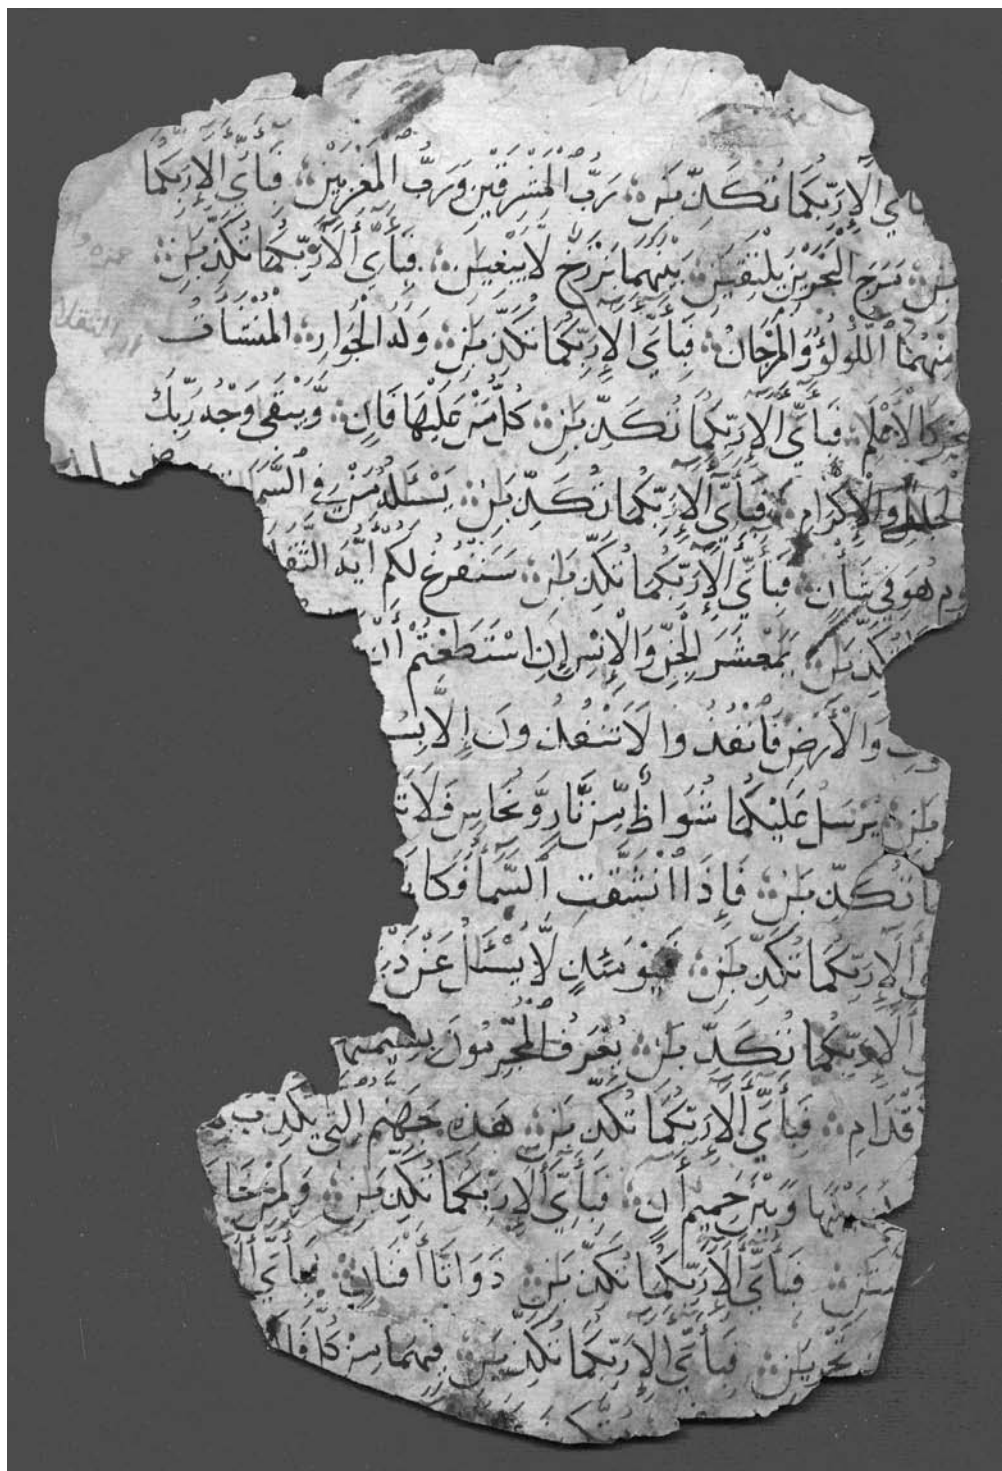 فَبِأَيِّ ءَالَآءِ رَبِّكُمَا تُكَذِّبَنِ رَبُّ الْمَشْرِقَيْنِ وَرَبُّ الْمَغْرِبَيْنِ فَبِأَيِّ ءَالَآءِ رَبِّكُمَا
ـبَنِ مَرَجَ الْبَحْرَيْنِ يَلْتَقِيَنِ بَيْنَهُمَا بَرْزَخٌ لَّا يَبْغِيَنِ فَبِأَيِّ ءَالَآءِ رَبِّكُمَا تُكَذِّبَنِ
مِنْهُمَا اللُّؤْلُؤُ وَالْمَرْجَانُ فَبِأَيِّ ءَالَآءِ رَبِّكُمَا تُكَذِّبَنِ وَلَهُ الْجَوَارِ الْمُنْشَأَتُ
الْبَحْرِ كَالْأَعْلَمِ فَبِأَيِّ ءَالَآءِ رَبِّكُمَا تُكَذِّبَنِ كُلُّ مَنْ عَلَيْهَا فَانٍ وَيَبْقَى وَجْهُ رَبِّكَ
الْجَلَلِ وَالْإِكْرَامِ فَبِأَيِّ ءَالَآءِ رَبِّكُمَا تُكَذِّبَنِ يَسْئَلُهُ مَنْ فِي السَّمَ
يَوْمٍ هُوَ فِي شَأْنٍ فَبِأَيِّ ءَالَآءِ رَبِّكُمَا تُكَذِّبَنِ سَنَفْرُغُ لَكُمْ أَيُّهَ الثَّقَلَ
تُكَذِّبَنِ يَمَعْشَرَ الْجِنِّ وَالْإِنْسِ إِنِ اسْتَطَعْتُمْ أَنْ
وَتِ وَالْأَرْضِ فَانْفُذُوا لَا تَنْفُذُونَ إِلَّا بِسُ
ـبَنِ يُرْسَلُ عَلَيْكُمَا شُوَاظٌ مِّن نَّارٍ وَنُحَاسٍ فَلَا تَ
ـمَا تُكَذِّبَنِ فَإِذَا انْشَقَّتِ السَّمَاءُ فَكَانَ
ءَالَآءِ رَبِّكُمَا تُكَذِّبَنِ فَيَوْمَئِذٍ لَّا يُسْئَلُ عَنْ ذَنْ
ءَالَآءِ رَبِّكُمَا تُكَذِّبَنِ يُعْرَفُ الْمُجْرِمُونَ بِسِيمَهُ
قْدَامِ فَبِأَيِّ ءَالَآءِ رَبِّكُمَا تُكَذِّبَنِ هَذِهِ جَهَنَّمُ الَّتِي يُكَذِّبُ
بَيْنَهَا وَبَيْنَ حَمِيمٍ أَنٍ فَبِأَيِّ ءَالَآءِ رَبِّكُمَا تُكَذِّبَنِ وَلِمَنْ خَا
جَنَّتَنِ فَبِأَيِّ ءَالَآءِ رَبِّكُمَا تُكَذِّبَنِ ذَوَاتَا أَفْنَانٍ فَبِأَيِّ ءَالَ
تَجْرِيَنِ فَبِأَيِّ ءَالَآءِ رَبِّكُمَا تُكَذِّبَنِ فِيهِمَا مِنْ كُلِّ فَا